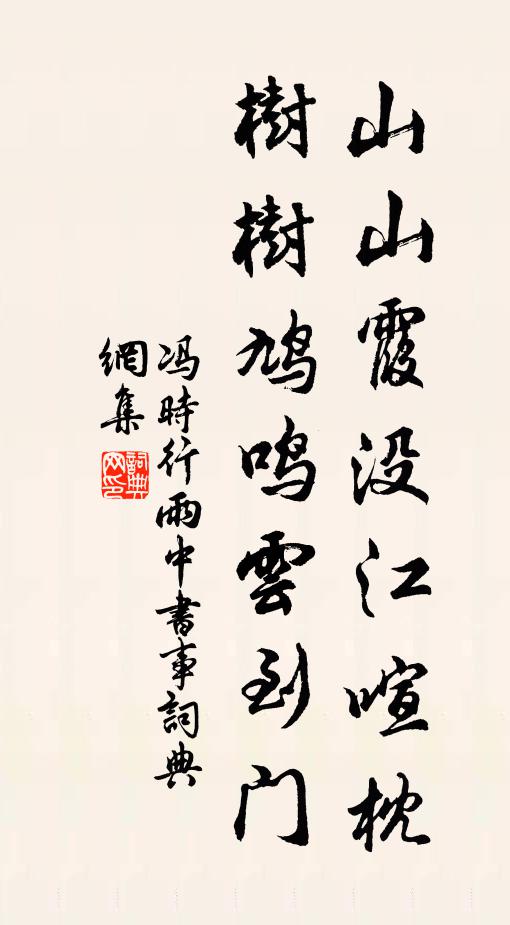 山山霞没江喧枕
樹樹鸠鸣雲到门
冯時行雨中書事詞典
網集
詞典
网印